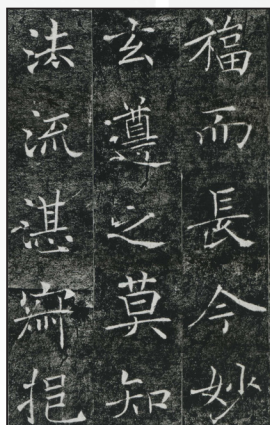 福而長今妙
玄遵之莫知
法流湛寂挹